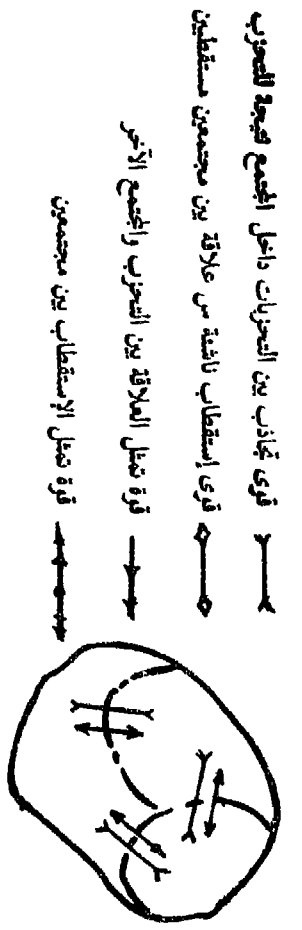 قوى تجاذب بين التحزبات داخل المجتمع نتيجة للتحزب
قوى إستقطاب ناشئة س علاقة بين مجتمعين مستقطبين
قوة تمثل العلاقة بين التحزب والمجتمع الآخر
قوة تمثل الإستقطاب بين مجتمعين